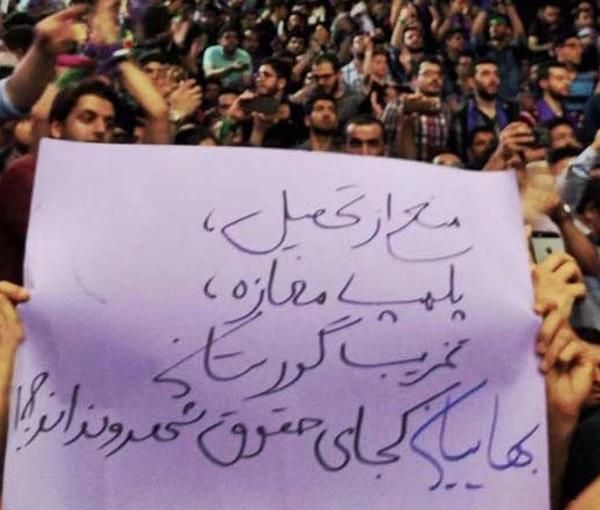 منع از تحصیل،
پلمپ مغازه،
تخریب گورستان
بهاییان کجای حقوق شهروندانه؟!